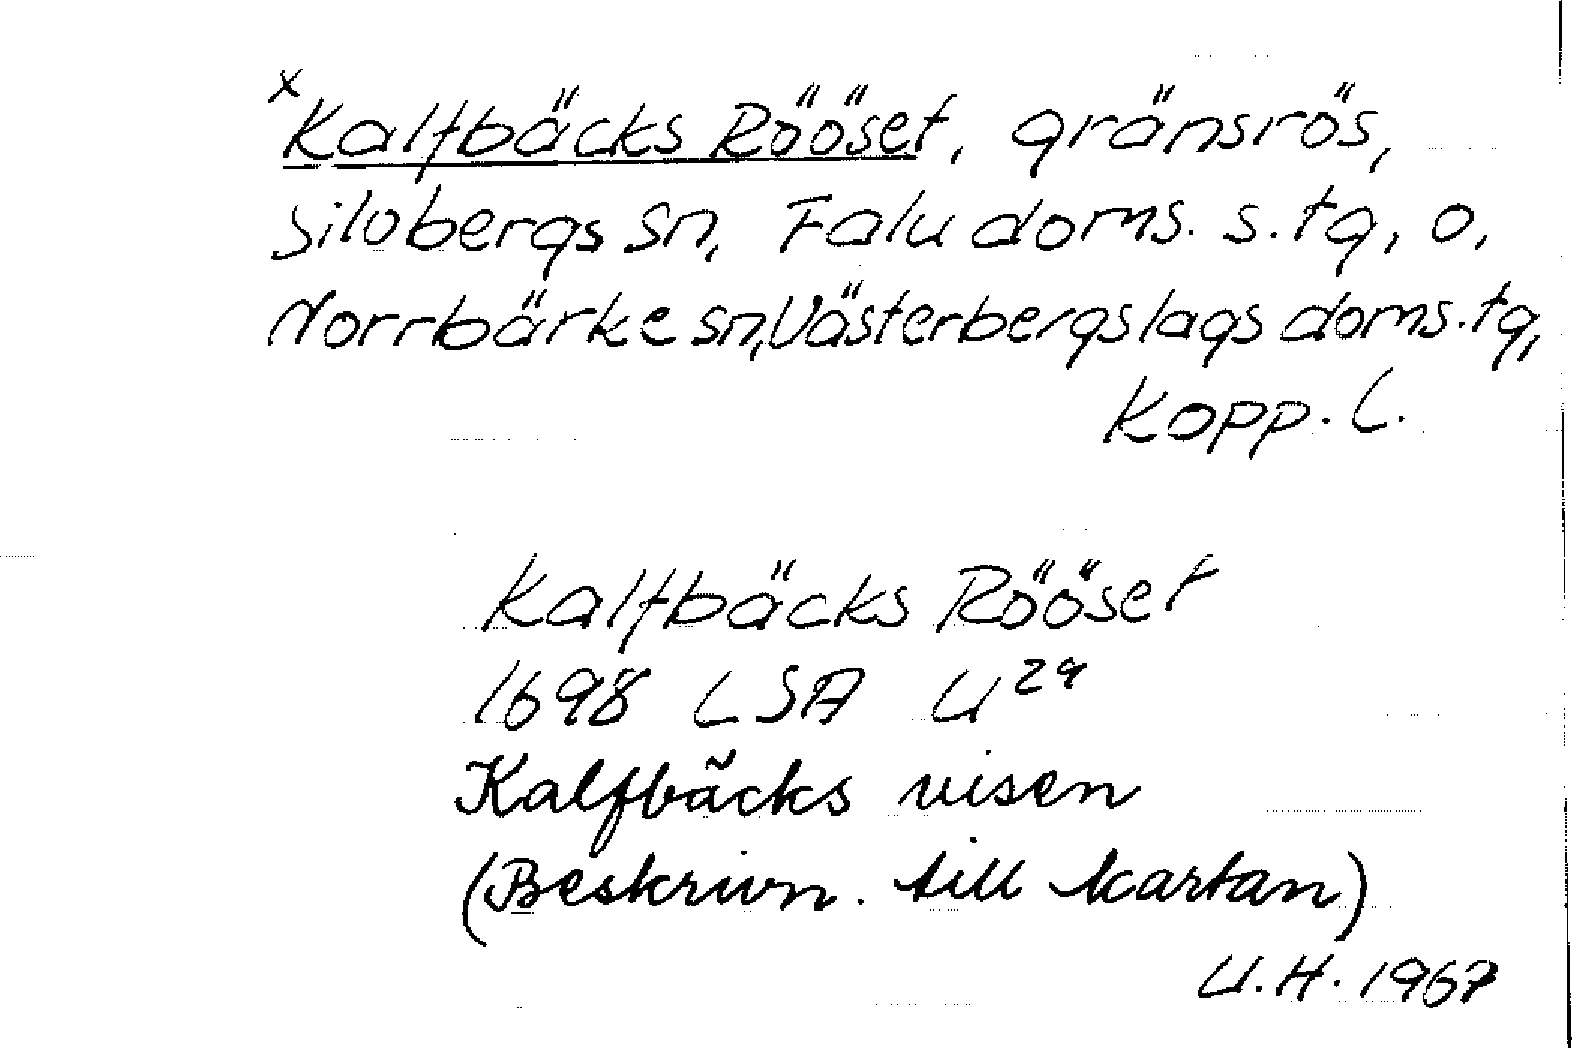 x Kalfbäcks Rööset, gränsrös,
Silvbergs sn, Falu doms. s. tg, o,
Norrbärke sn, Västerbergslags doms. tg,
Kopp. l.
Kalfbäcks Rööset
1698 LSA U²⁹
Kalfbäcks visen
(Beskrivn. till kartan)
U.H. 1967